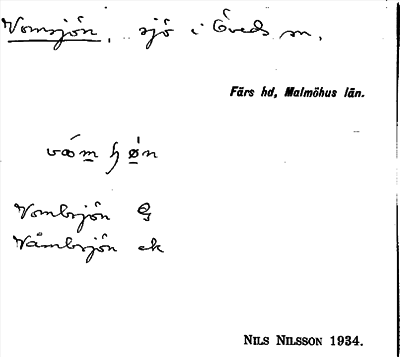 Vomsjön, sjö i Öveds sn.
Färs hd, Malmöhus län.
Vombsjön G
Våmbsjön ek
NILS NILSSON 1934.